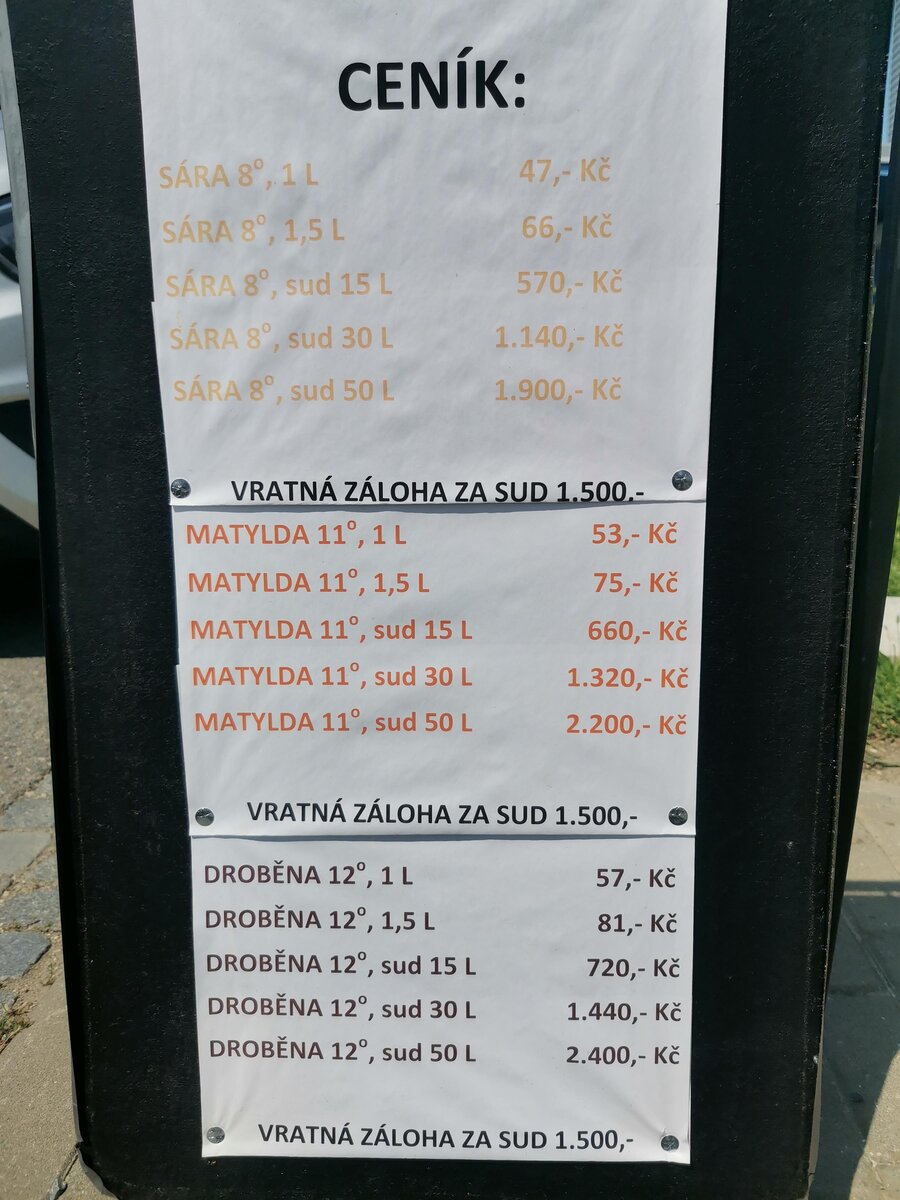 CENÍK:
SÁRA 8°, 1 L 47,- Kč
SÁRA 8°, 1,5 L 66,- Kč
SÁRA 8°, sud 15 L 570,- Kč
SÁRA 8°, sud 30 L 1.140,- Kč
SÁRA 8°, sud 50 L 1.900,- Kč
VRATNÁ ZÁLOHA ZA SUD 1.500,-
MATYLDA 11°, 1 L 53,- Kč
MATYLDA 11°, 1,5 L 75,- Kč
MATYLDA 11°, sud 15 L 660,- Kč
MATYLDA 11°, sud 30 L 1.320,- Kč
MATYLDA 11°, sud 50 L 2.200,- Kč
VRATNÁ ZÁLOHA ZA SUD 1.500,-
DROBĚNA 12°, 1 L 57,- Kč
DROBĚNA 12°, 1,5 L 81,- Kč
DROBĚNA 12°, sud 15 L 720,- Kč
DROBĚNA 12°, sud 30 L 1.440,- Kč
DROBĚNA 12°, sud 50 L 2.400,- Kč
VRATNÁ ZÁLOHA ZA SUD 1.500,-